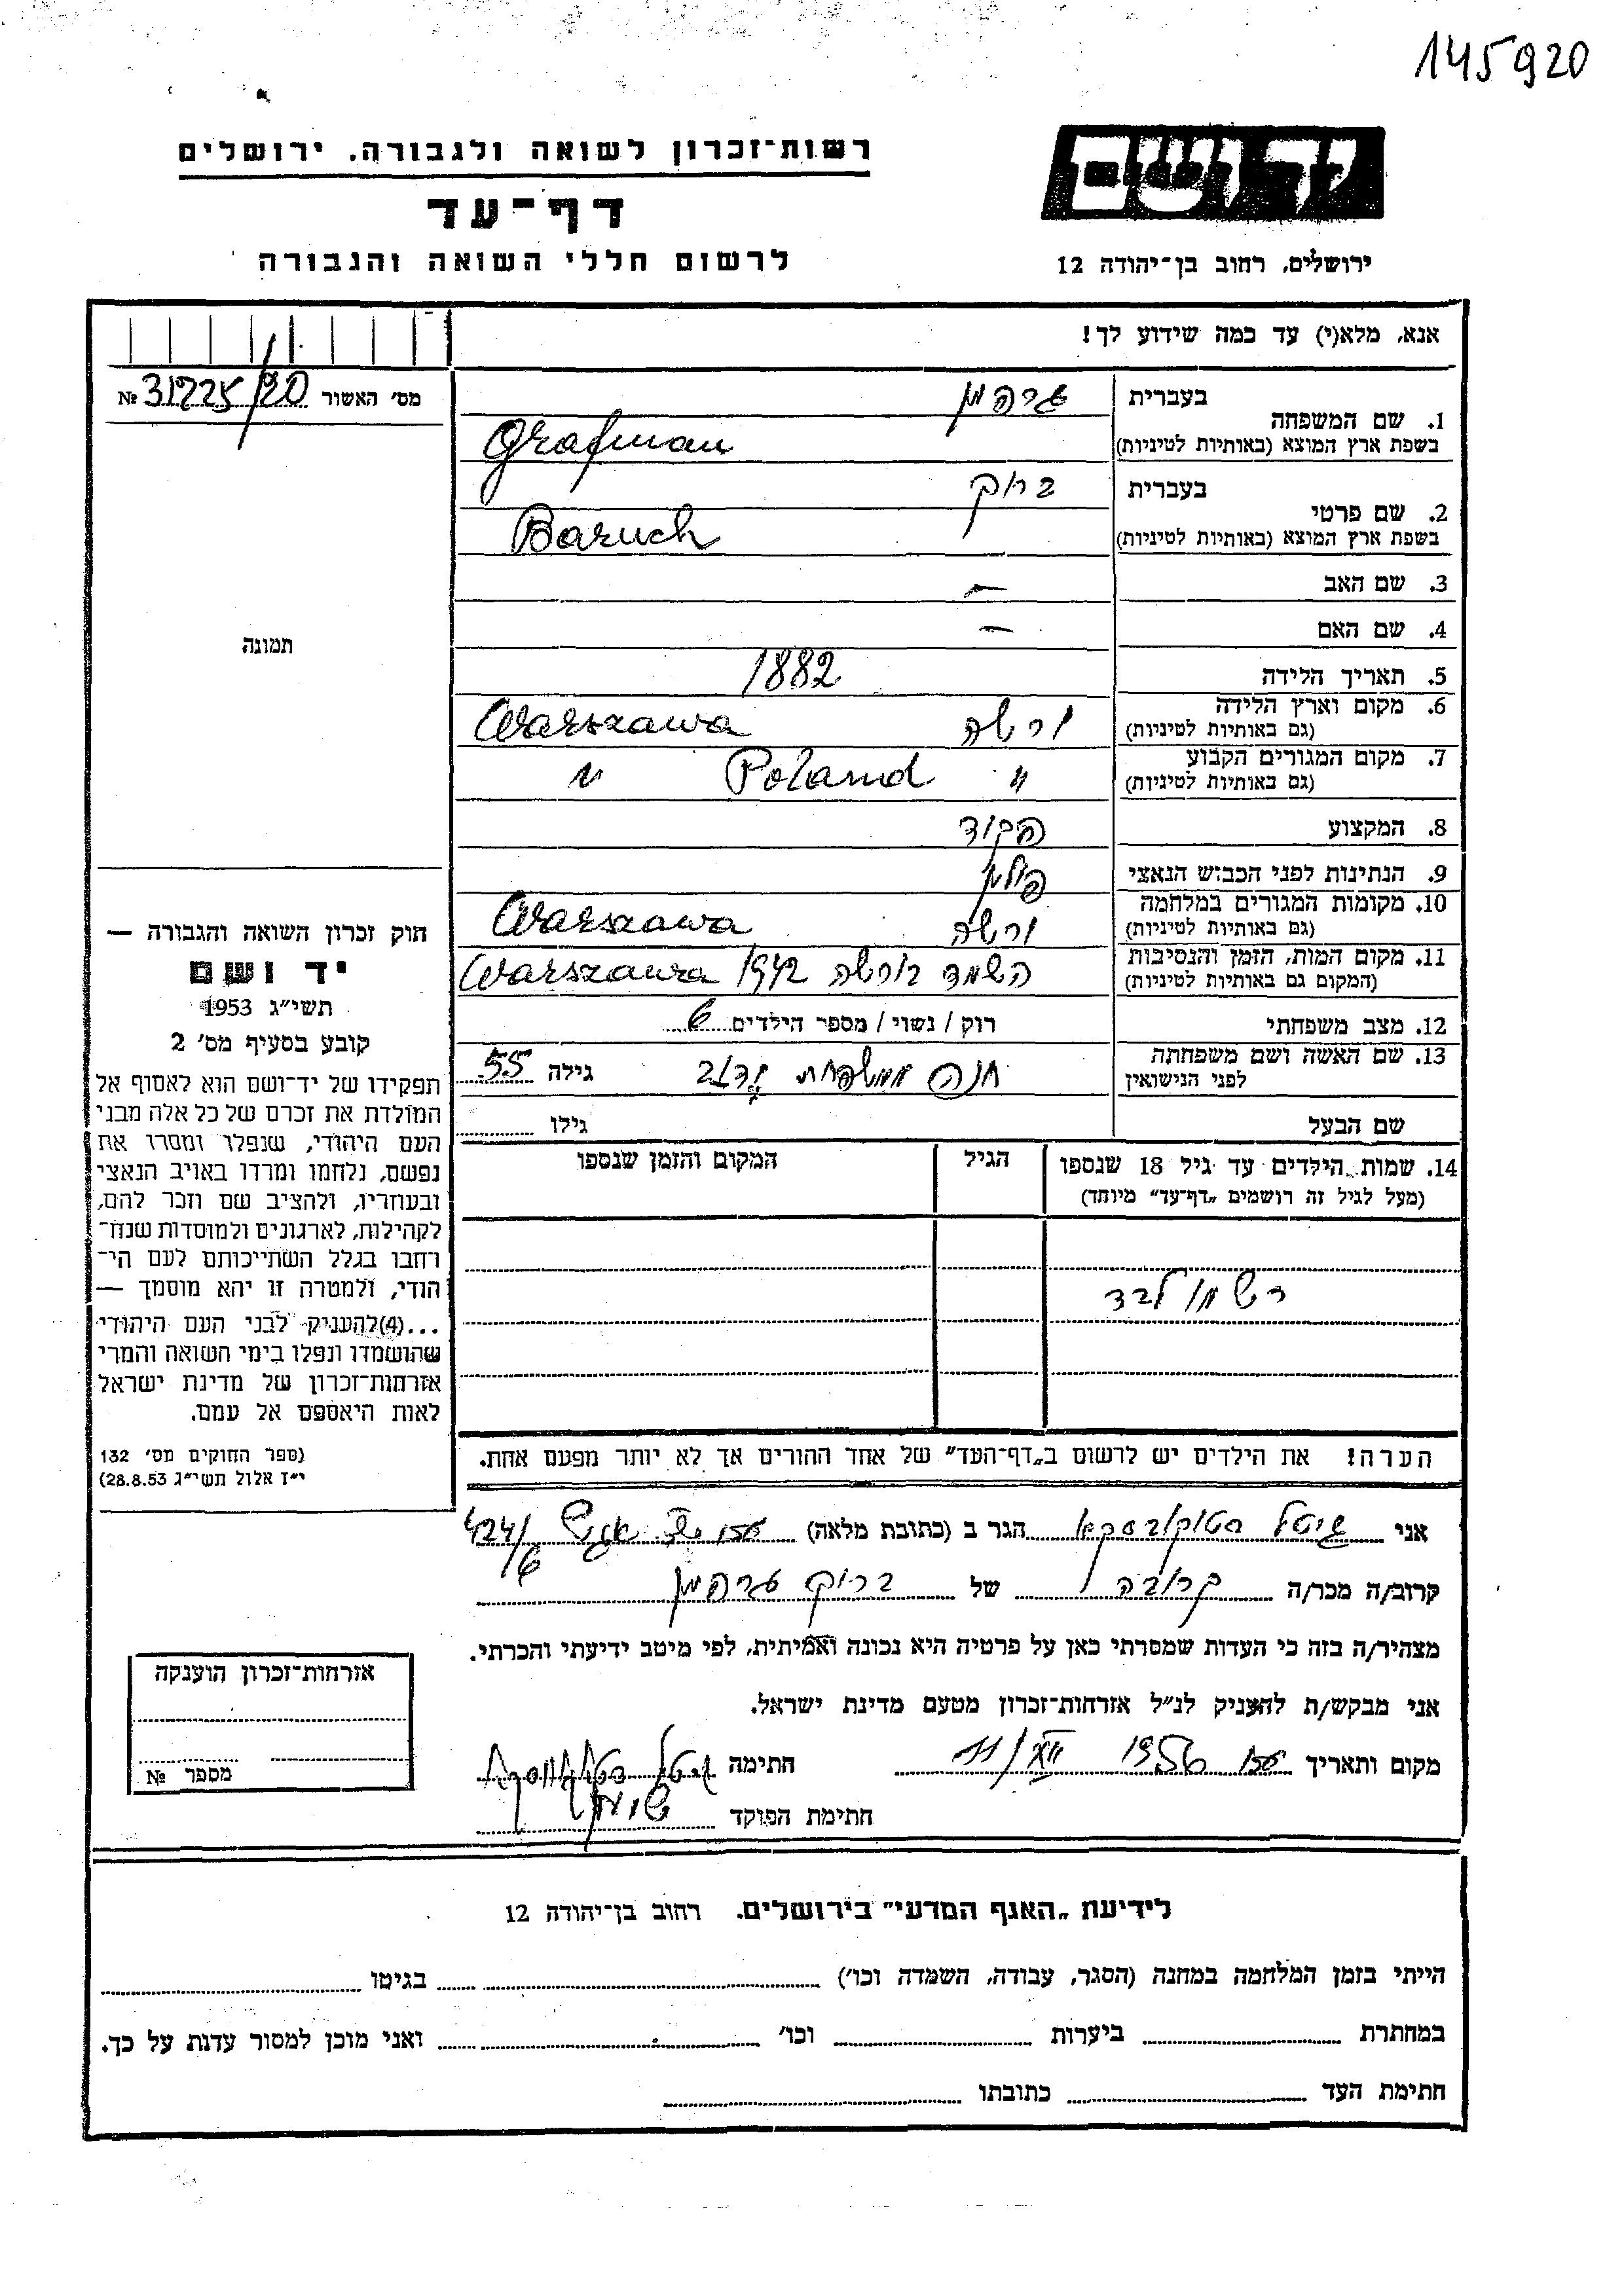 145920
רשות־זכרון לשואה ולגבורה. ירושלים
יד ושם
דף־עד
לרשום חללי השואה והגבורה
ירושלים, רחוב בן־יהודה 12
אנא, מלא(י) עד כמה שידוע לך!
מס׳ האשור № 31225/20
תמונה
1. שם המשפחה
בעברית גרפמן
בשפת ארץ המוצא (באותיות לטיניות) Grafman
2. שם פרטי
בעברית ברוך
בשפת ארץ המוצא (באותיות לטיניות) Baruch
3. שם האב —
4. שם האם —
5. תאריך הלידה 1882
6. מקום וארץ הלידה ורשה Warszawa
(גם באותיות לטיניות)
7. מקום המגורים הקבוע " Poland "
(גם באותיות לטיניות)
8. המקצוע פקיד
9. הנתינות לפני הכבוש הנאצי פולין
10. מקומות המגורים במלחמה ורשה Warszawa
(גם באותיות לטיניות)
11. מקום המות, הזמן והנסיבות השמד בורשה 1942 Warszawa
(המקום גם באותיות לטיניות)
12. מצב משפחתי רוק / נשוי / מספר הילדים 6
13. שם האשה ושם משפחתה חנה ממשפחת גילה 55
לפני הנישואין
שם הבעל גילו
14. שמות הילדים עד גיל 18 שנספו הגיל המקום והזמן שנספו
(מעל לגיל זה רושמים „דף־עד״ מיוחד)
רשמו לבד
הערה! את הילדים יש לרשום ב„דף־העד״ של אחד ההורים אך לא יותר מפעם אחת.
חוק זכרון השואה והגבורה —
יד ושם
תשי״ג 1953
קובע בסעיף מס׳ 2
תפקידו של יד־ושם הוא לאסוף אל
המולדת את זכרם של כל אלה מבני
העם היהודי, שנפלו ומסרו את
נפשם, נלחמו ומרדו באויב הנאצי
ובעוזריו, ולהציב שם וזכר להם,
לקהילות, לארגונים ולמוסדות שנח־
רחבו בגלל השתייכותם לעם הי־
הודי, ולמטרה זו יהא מוסמך —
...(4)להעניק לבני העם היהודי
שהושמדו ונפלו בימי השואה והמרי
אזרחות־זכרון של מדינת ישראל
לאות היאספם אל עמם.
(ספר החוקים מס׳ 132
י״ז אלול תשי״ג 28.8.53)
אני גיטל הגר ב (כתובת מלאה) 424/
6
קרוב/ה מכר/ה קרובה של ברוך גרפמן
מצהיר/ה בזה כי העדות שמסרתי כאן על פרטיה היא נכונה ואמיתית, לפי מיטב ידיעתי והכרתי.
אני מבקש/ת להעניק לנ״ל אזרחות־זכרון מטעם מדינת ישראל.
מקום ותאריך 1956 11/XII חתימה גיטל
חתימת הפוקד
אזרחות־זכרון הוענקה
מספר №
לידיעת „האגף המדעי״ בירושלים. רחוב בן־יהודה 12
הייתי בזמן המלחמה במחנה (הסגר, עבודה, השמדה וכו׳) בגיטו
במחתרת ביערות וכו׳ ואני מוכן למסור עדות על כך.
חתימת העד כתובתו